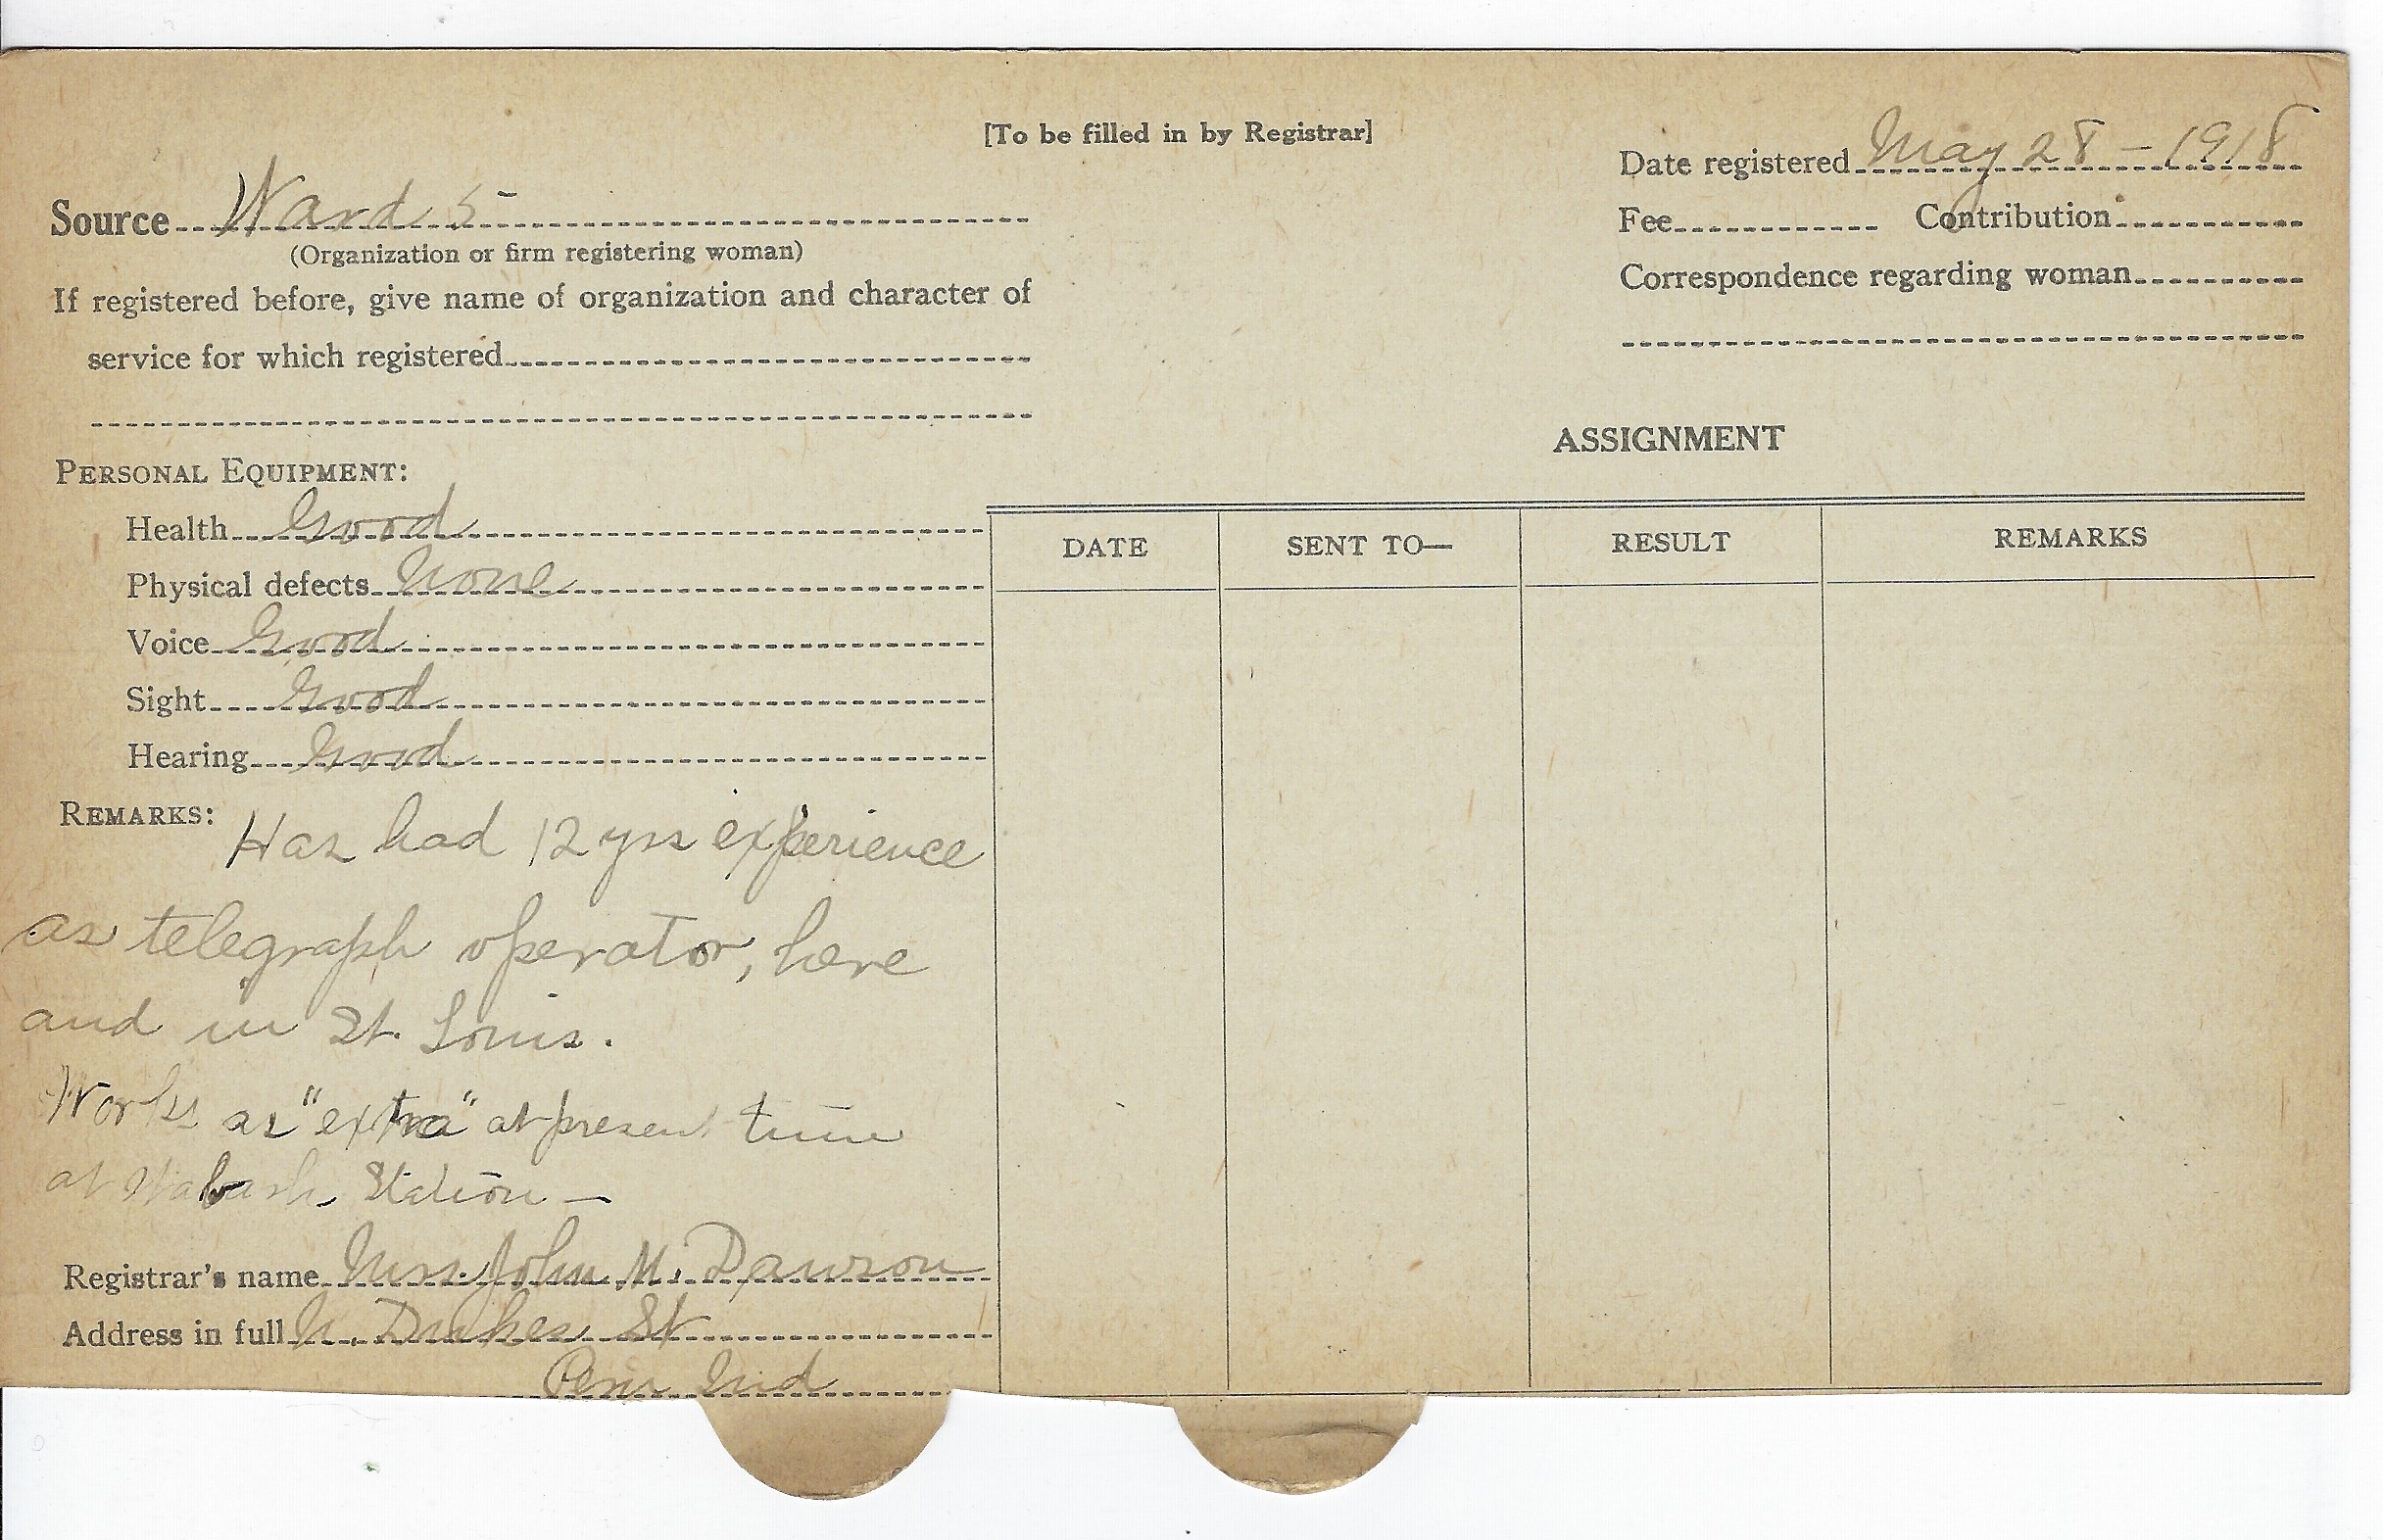 [To be filled in by Registrar]
Date registered May 28 - 1918
Source Ward 5
Fee Contribution
(Organization or firm registering woman)
Correspondence regarding woman
If registered before, give name of organization and character of
service for which registered
ASSIGNMENT
PERSONAL EQUIPMENT:
Health Good
DATE SENT TO— RESULT REMARKS
Physical defects None
Voice Good
Sight Good
Hearing Good
REMARKS: Has had 12 yrs experience
as telegraph operator, here
and in St. Louis.
Works as "extra" at present time
at Wabash Station —
Registrar's name Mrs. John M. Dawson
Address in full N. Dukes St
Peru Ind